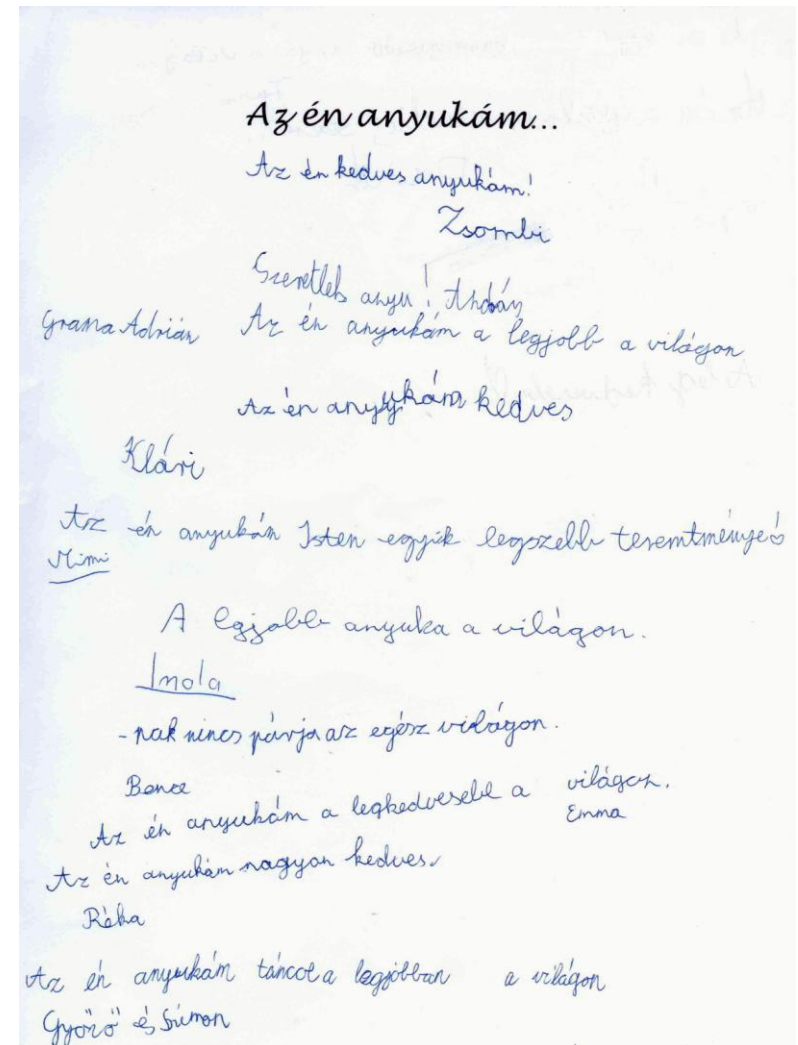 Az én anyukám...
Az én kedves anyukám!
Zsombi
Szeretlek anyu!
Adrián Az én anyukám a legjobb a világon
Az én anyukám kedves
Klári
Az én anyukám Isten egyik legszebb teremtménye
Mimi
A legjobb anyuka a világon.
Imola
-nak nincs párja az egész világon.
Bence
Az én anyukám a legkedvesebb a világon.
Emma
Az én anyukám nagyon kedves.
Réka
Az én anyukám táncol a legjobban a világon
Győző és Simon